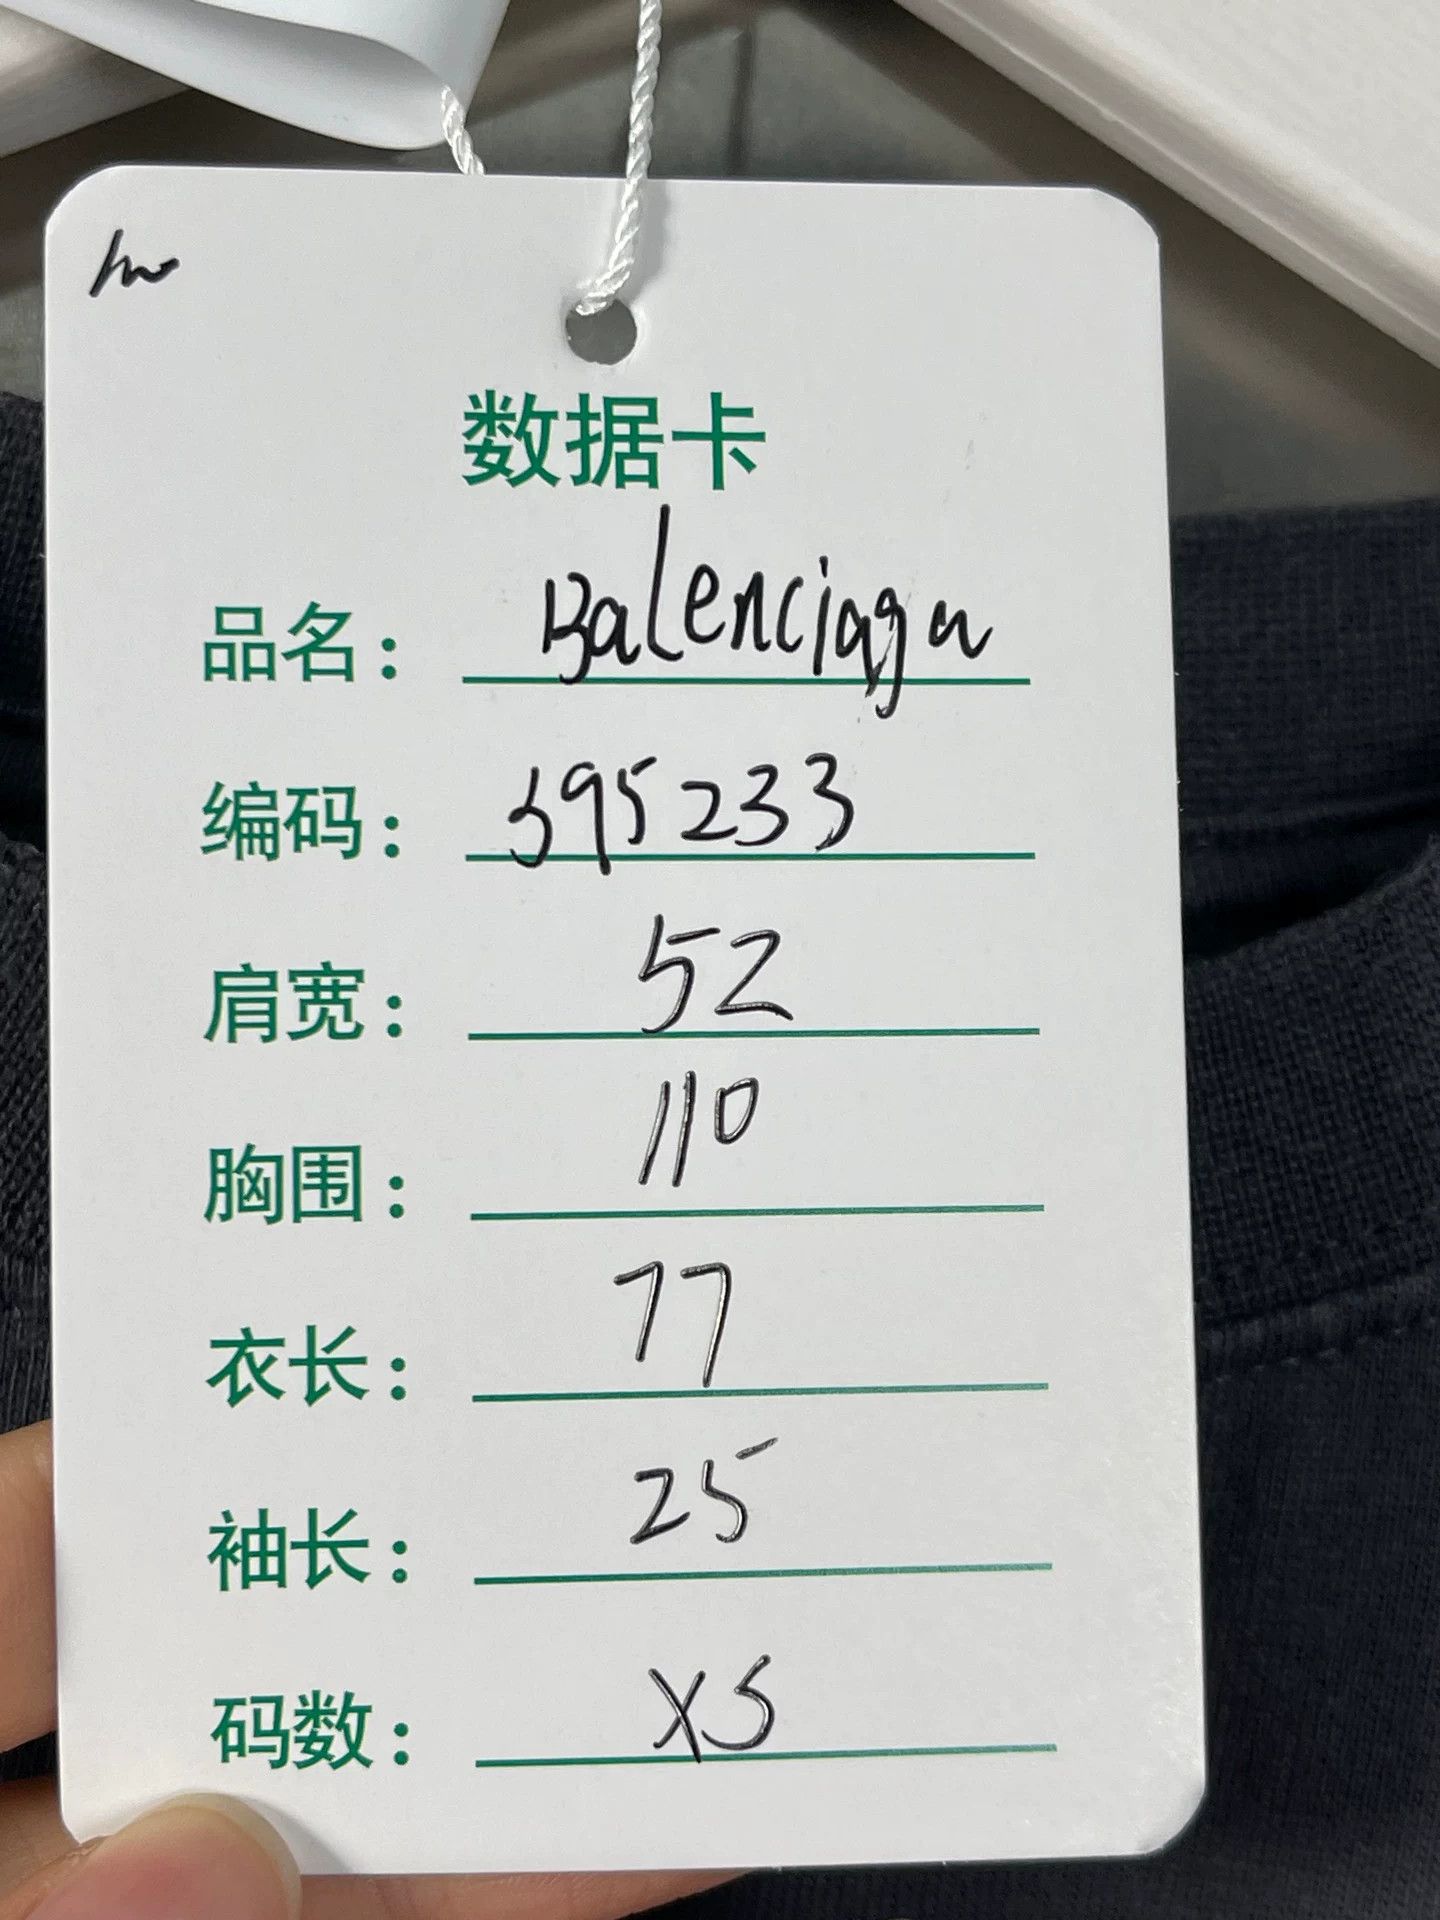 数据卡
品名： Balenciaga
编码： 395233
肩宽： 52
胸围： 110
衣长： 77
袖长： 25
码数： XS